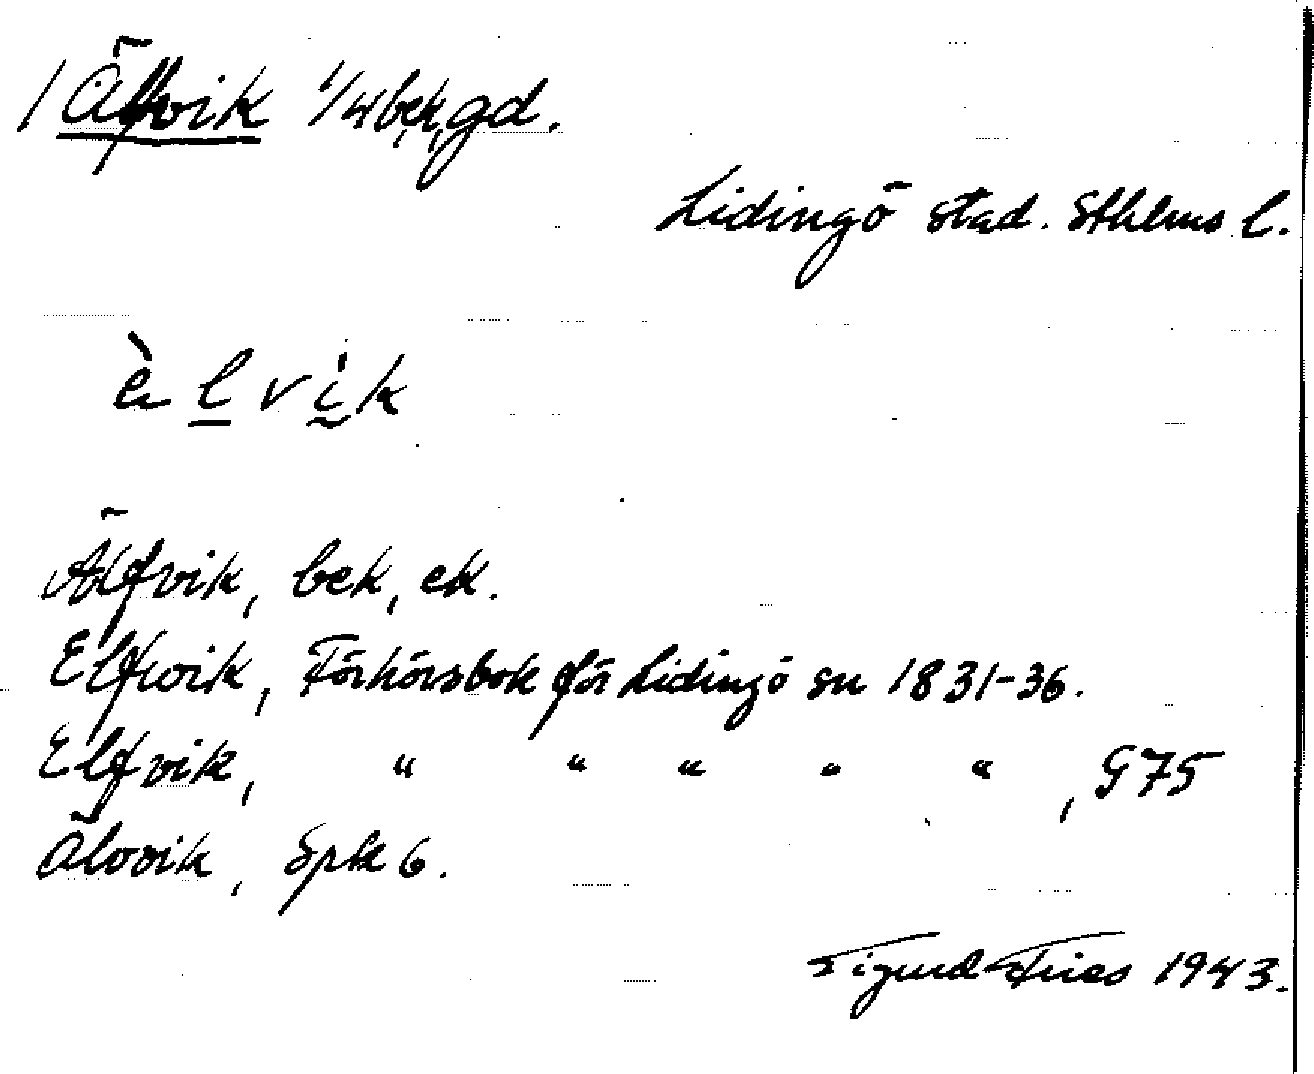 1 Älfvik 1/4 bek, gd.
Lidingö stad. Sthlms l.
èlvik
Älfvik, bek, ek.
Elfwik, Förhörsbok för Lidingö sn 1831-36.
Elfvik, " " " " " , G75
Älvvik, Spk 6.
Sigurd Fries 1943.